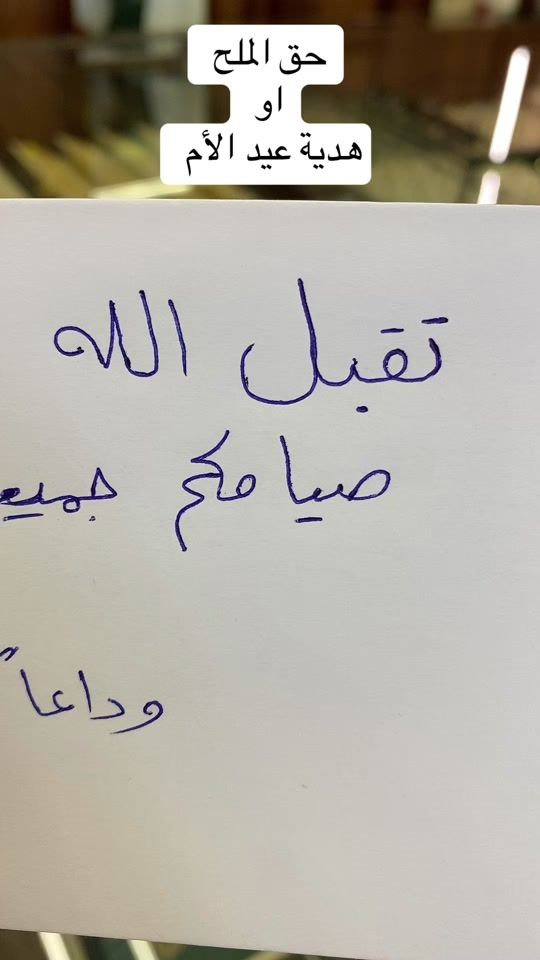 حق الملح
او
هدية عيد الأم
تقبل الله
صيامكم جميع
وداعاً